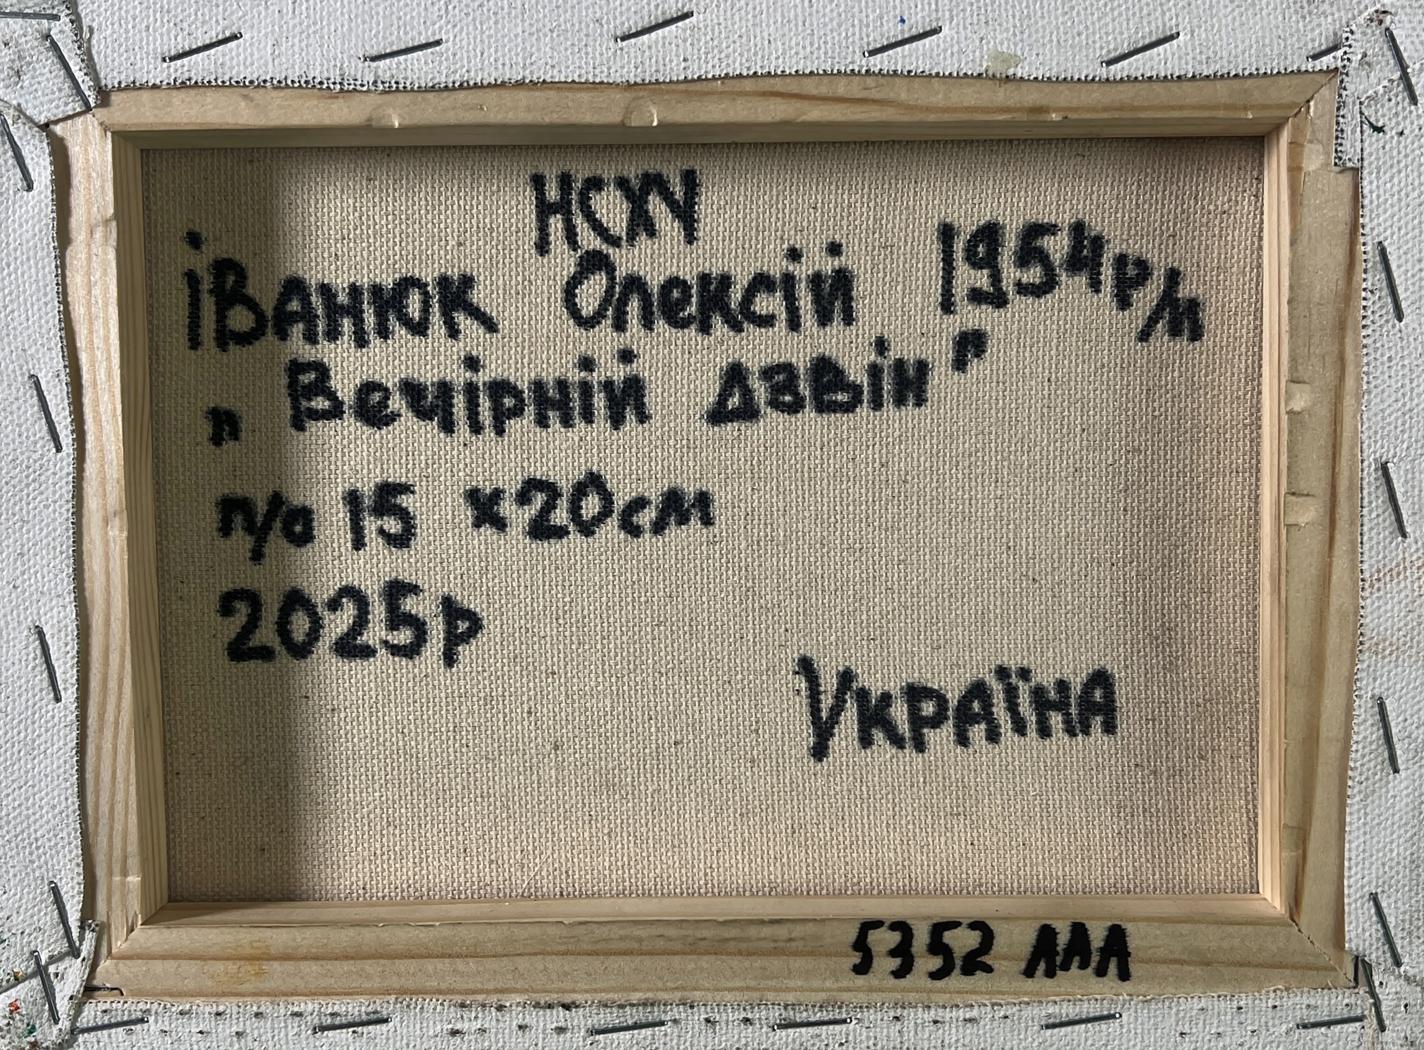 НСХУ
Іванюк Олексій 1954р/н
„Вечірній дзвін"
п/о 15 х20см
2025р
Україна
5352 ААА